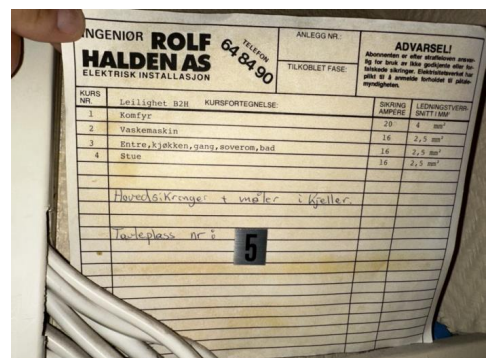 INGENIØR ROLF
HALDEN AS
ELEKTRISK INSTALLASJON
TELEFON
64 84 90
ANLEGG NR.:
TILKOBLET FASE:
ADVARSEL!
Abonnenten er etter straffeloven ansvar-
lig for bruk av ikke godkjente eller for-
falskede sikringer. Elektrisitetsverket har
plikt til å anmelde forholdet til påtale-
myndigheten.
KURS NR. Leilighet B2H KURSFORTEGNELSE: SIKRING AMPERE LEDNINGSTVERR-SNITT I MM²
1 Komfyr 20 4 mm²
2 Vaskemaskin 16 2,5 mm²
3 Entre,kjøkken,gang,soverom,bad 16 2,5 mm²
4 Stue 16 2,5 mm²
Hovedsikringer + måler i kjeller.
Tavleplass nr: 5